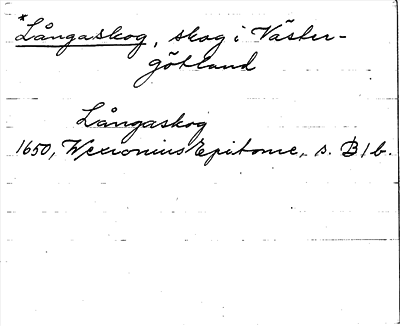 *Långaskog, skog i Väster-
götland
Långaskog
1650, Wexionius Epitome, s. B1b.